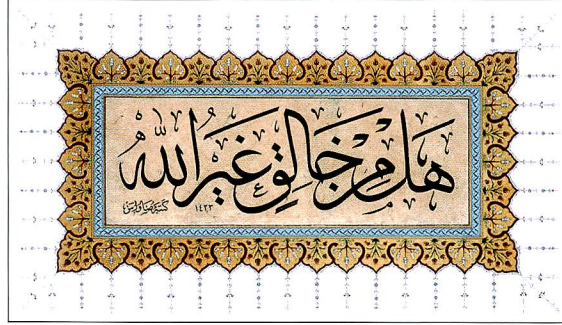 هَلْ مِنْ خَالِقٍ غَيْرُ اللهِ
١٤٢٣